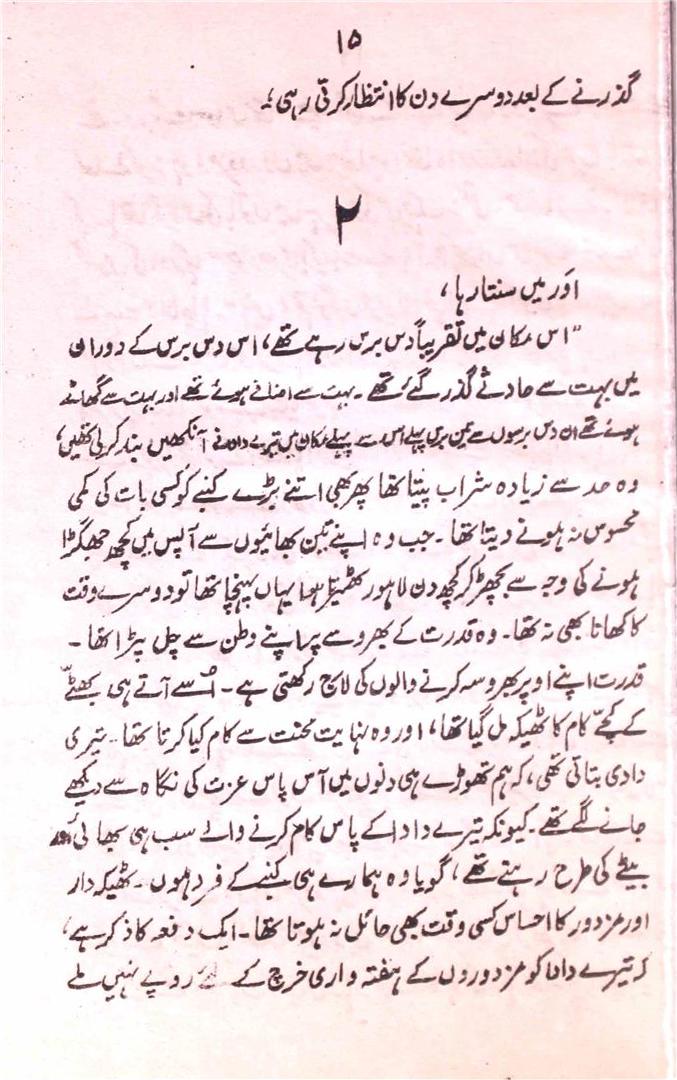 ۱۵
گذرنے کے بعد دوسرے دن کا انتظار کرتی رہی ؛
۲
اور میں سنتا رہا ،
"اس مکان میں تقریباً دس برس رہے تھے ، اس دس برس کے دوران
میں بہت سے حادثے گذر گئے تھے ۔ بہت سے اضافے ہوئے تھے اور بہت سے گھاٹے
ہوئے تھے ان دس برسوں سے تین برس پہلے اس سے پہلے مکان میں تیرے دادا نے آنکھیں بند کر لی تھیں ،
وہ حد سے زیادہ شراب پیتا تھا پھر بھی اتنے بڑے کنبے کو کسی بات کی کمی
محسوس نہ ہونے دیتا تھا ۔ جب وہ اپنے تین بھائیوں سے آپس میں کچھ جھگڑا
ہونے کی وجہ سے بچھڑ کر کچھ دن لاہور ٹھیرتا ہوا یہاں پہنچا تھا تو دوسرے وقت
کا کھانا بھی نہ تھا ۔ وہ قدرت کے بھروسے پر اپنے وطن سے چل پڑا تھا ۔
قدرت اپنے اوپر بھروسہ کرنے والوں کی لاج رکھتی ہے ۔ اُسے آتے ہی بھٹے
کے کچے کام کا ٹھیکہ مل گیا تھا ، اور وہ نہایت محنت سے کام کیا کرتا تھا ۔ تیری
دادی بتاتی تھی ، کہ ہم تھوڑے ہی دنوں میں آس پاس عزت کی نگاہ سے دیکھے
جانے لگے تھے ۔ کیونکہ تیرے دادا کے پاس کام کرنے والے سب ہی بھائی اور
بیٹے کی طرح رہتے تھے ، گویا وہ ہمارے ہی کنبے کے فرد ہوں ۔ ٹھیکہ دار
اور مزدور کا احساس کسی وقت بھی حائل نہ ہوتا تھا ۔ ایک دفعہ کا ذکر ہے ،
کہ تیرے دادا کو مزدوروں کے ہفتہ واری خرچ کے لئے روپے نہیں ملے